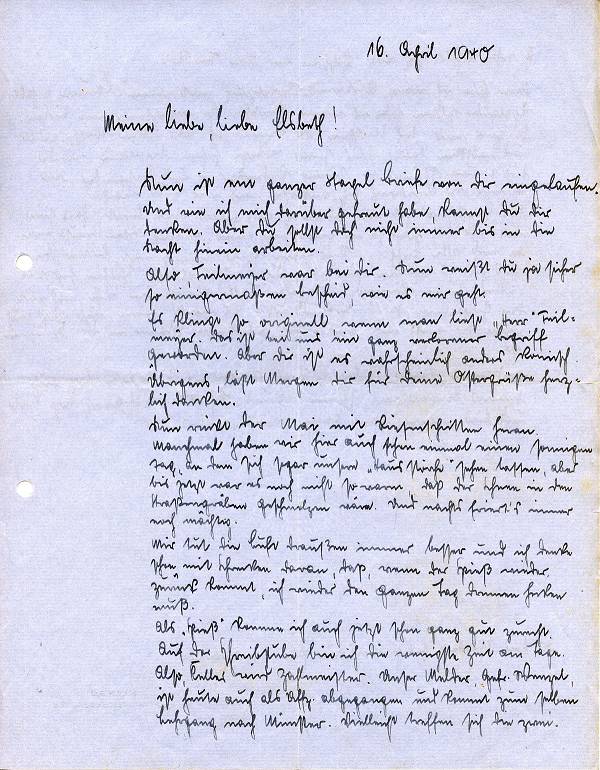 16. April 1940
Meine liebe, liebe Elsbeth!
Nun ist ein ganzer Stapel Briefe von Dir eingelaufen.
Und wie ich mich darüber gefreut habe, kannst Du Dir
denken. Aber Du sollst doch nicht immer bis in die
Nacht hinein arbeiten.
Also, Teilmeyer war bei Dir. Nun weißt Du ja sicher
so einigermaßen bescheid, wie es mir geht.
Es klingt so originell wenn man liest „Herr" Teil-
meyer, das ist bei uns ein ganz verlorener Begriff
geworden. Aber Dir ist es wahrscheinlich anders komisch.
Übrigens, läßt Mergen Dir für Deine Ostergrüße herz-
lich danken.
Nun rückt der Mai mit Riesenschritten heran.
Manchmal haben wir hier auch schon einmal einen sonnigen
Tag, an dem sich sogar unsere sehen lassen, aber
bis jetzt war es noch nicht so warm, daß der Schnee in den
Straßengräben geschmolzen wäre. Und nachts friert's immer
noch mächtig.
Mir tut die Luft draußen immer besser und ich denke
schon mit Schrecken daran, daß, wenn der Spieß wieder
zurück kommt, ich wieder den ganzen Tag drinnen hocken
muß.
Als „Spieß" komme ich auch jetzt schon ganz gut zurecht.
Auf der Schreibstube bin ich die wenigste Zeit am Tage.
Also, Keller wird Zahlmeister. Unser Melder, Gefr. Wenzel,
ist heute auch als Uffz. abgegangen und kommt zum selben
Lehrgang nach Münster. Vielleicht treffen sich die zwei.